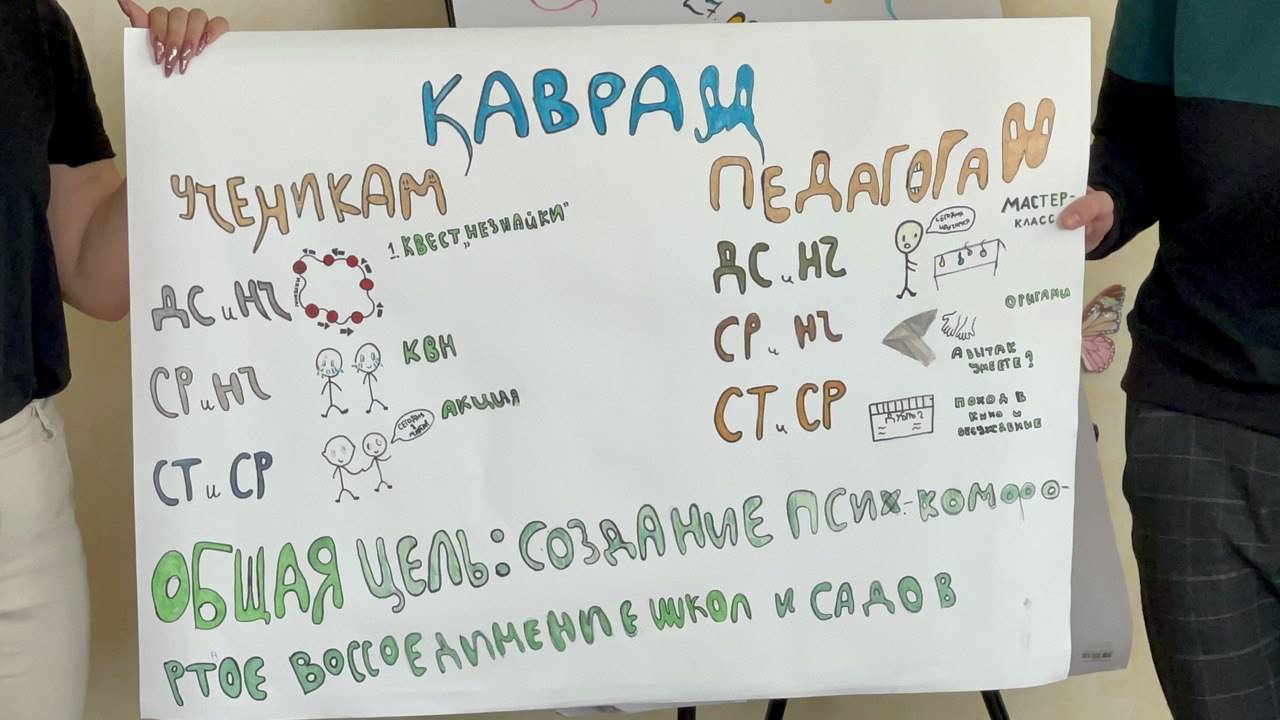 КАВРАЩ
УЧЕНИКАМ
1. КВЕСТ „НЕЗНАЙКИ"
ДС и НЧ
КВН
СР и НЧ
АКЦИЯ
СТ и СР
ПЕДАГОГАМ
МАСТЕР-
КЛАСС
ДС и НЧ
ОРИГАМИ
СР и НЧ
А ВЫ ТАК
УМЕЕТЕ?
СТ и СР
ПОХОД В
КИНО и
ОБСУЖДЕНИЕ
ОБЩАЯ ЦЕЛЬ: СОЗДАНИЕ ПСИХ.-КОМФО-
РТОЕ ВОССОЕДИМЕНИЕ ШКОЛ И САДОВ